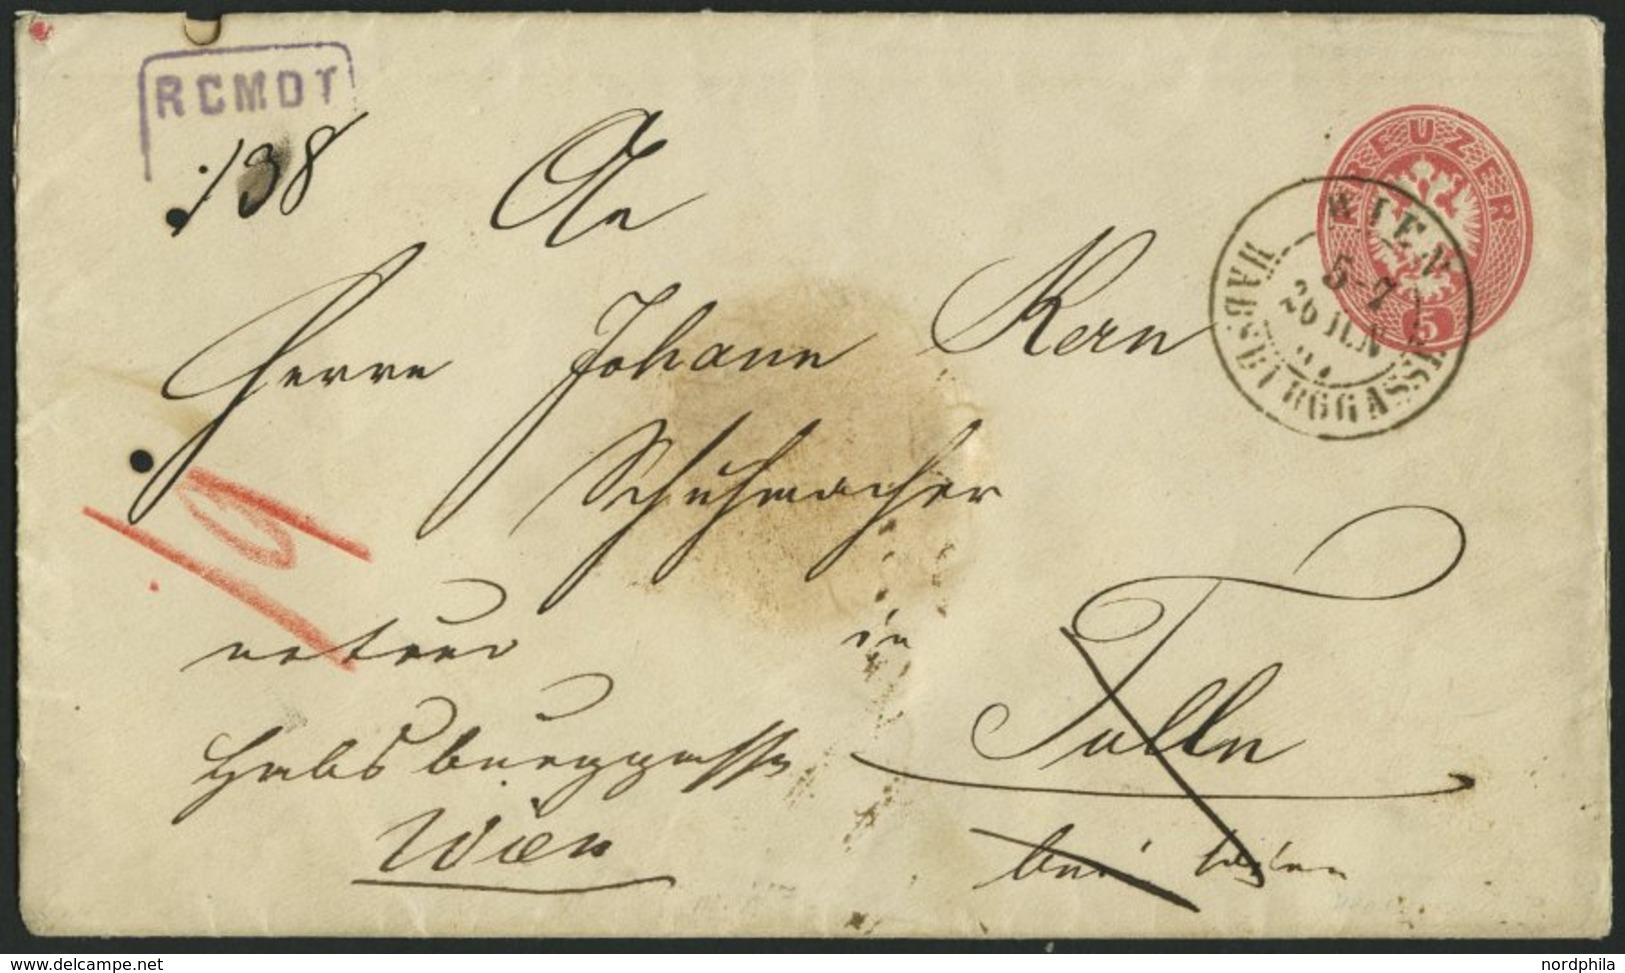 RCMDT
138
KREUZER
5
WIEN
5-7
26 JUN
HABSBURGGASSE
An
Herrn Johann Kern
Schuhmacher
19
in
retour
Tulln
Habsburggasse
Wien
bei Wien
delcampe.net
nordphila